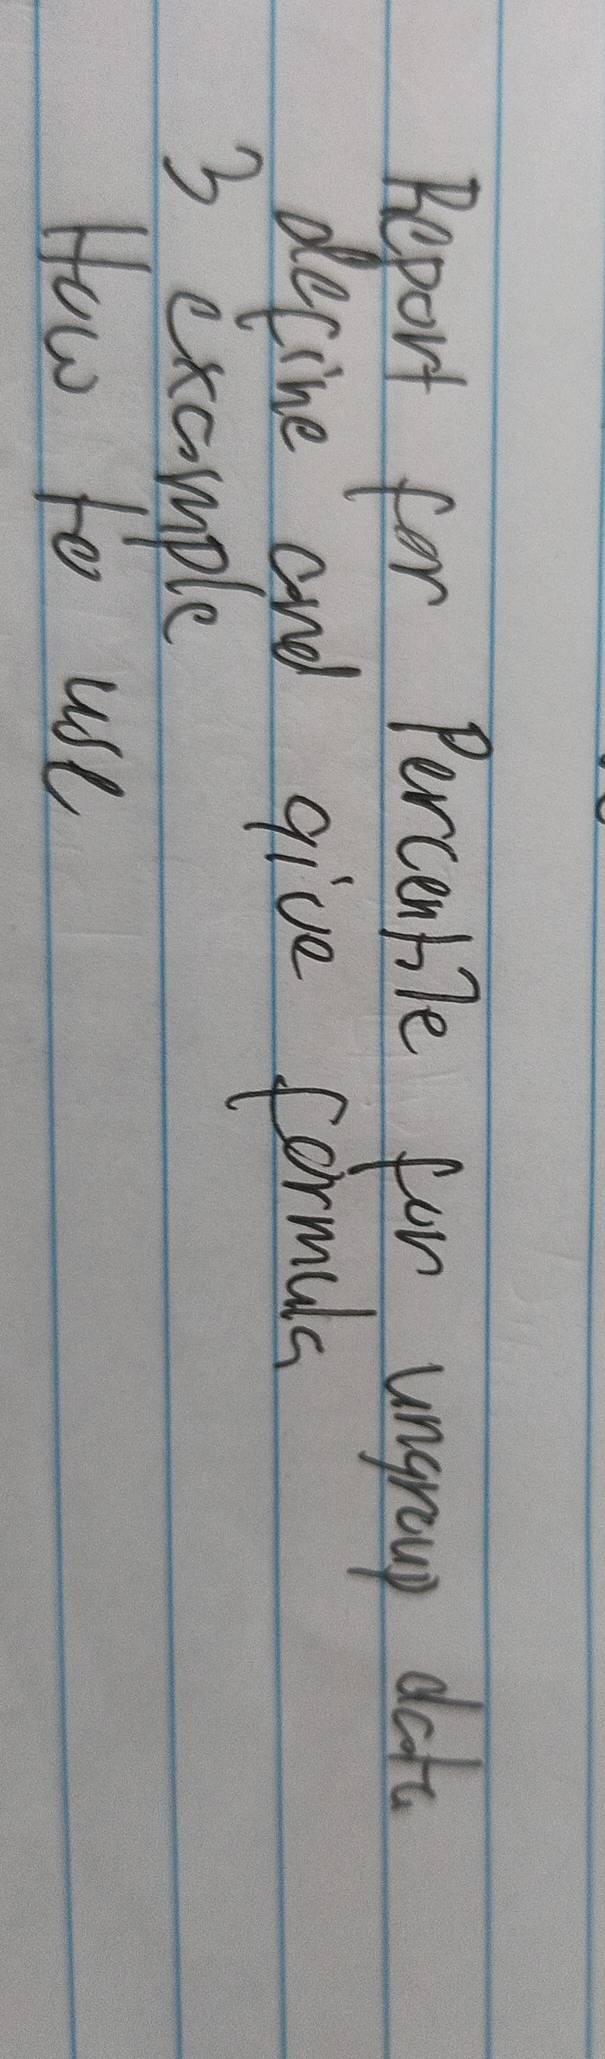 Report for Percentile for ungroup data
define and give formula
3 example
How to use